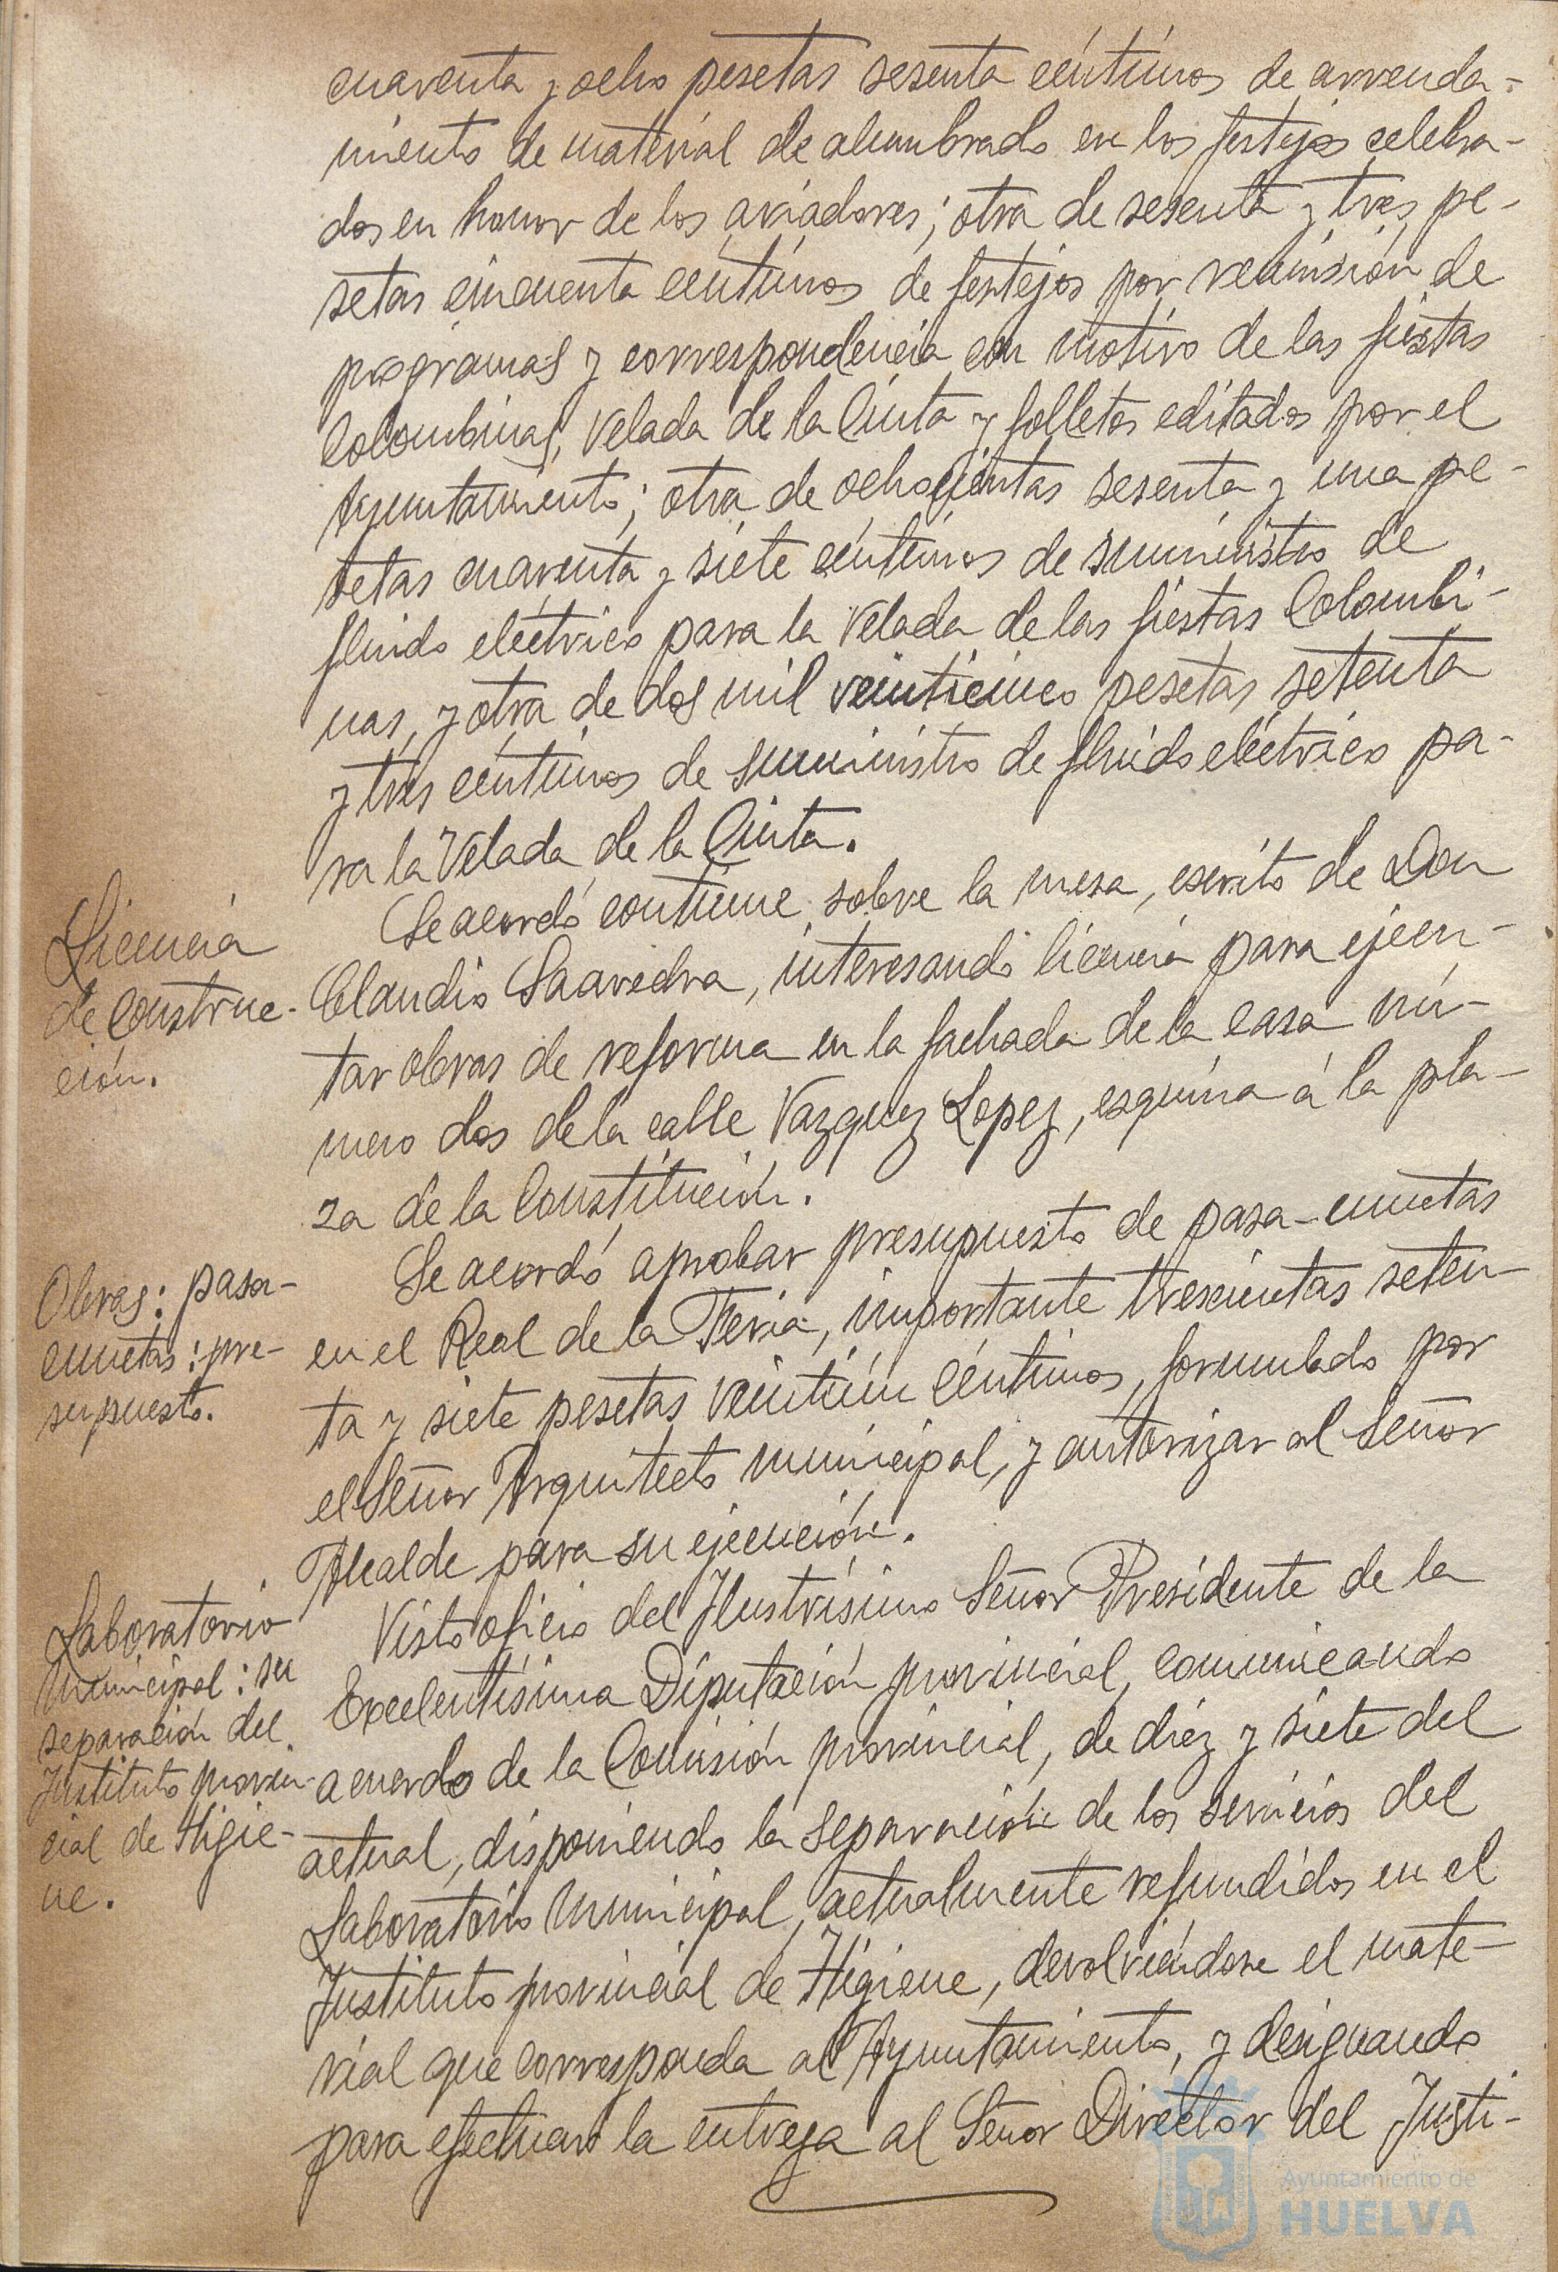 cuarenta y ocho pesetas sesenta céntimos de arrenda-
miento de material de alumbrado en los festejos celebra-
dos en honor de los aviadores; otra de sesenta y tres pe-
setas cincuenta céntimos de festejos por remisión de
programas y correspondencia con motivo de las fiestas
Colombinas, Velada de la Cinta y folletos editados por el
Ayuntamiento; otra de ochocientas sesenta y una pe-
setas cuarenta y siete céntimos de suministro de
fluido eléctrico para la Velada de las fiestas Colombi-
nas, y otra de dos mil veinticinco pesetas setenta
y tres céntimos de suministro de fluido eléctrico pa-
ra la Velada de la Cinta.
Licencia
de Construc-
ción.
Se acordó continúe sobre la mesa, escrito de Don
Claudio Saavedra, interesando licencia para ejecu-
tar obras de reforma en la fachada de la casa nú-
mero dos de la calle Vazquez Lopez, esquina á la pla-
za de la Constitución.
Obras: pasa-
cunetas: pre-
supuesto.
Se acordó aprobar presupuesto de pasa-cunetas
en el Real de la Feria, importante trescientas seten-
ta y siete pesetas veintiún céntimos, formulado por
el Señor Arquitecto municipal, y autorizar al Señor
Alcalde para su ejecución.
Laboratorio
municipal: su
separación del
Instituto provin-
cial de Higie-
ne.
Visto oficio del Ilustrísimo Señor Presidente de la
Excelentísima Diputación provincial, comunicando
acuerdo de la Comisión provincial, de diez y siete del
actual, disponiendo la separación de los servicios del
Laboratorio municipal, actualmente refundidos en el
Instituto provincial de Higiene, devolviéndose el mate-
rial que corresponda al Ayuntamiento, y designando
para efectuar la entrega al Señor Director del Insti-
Ayuntamiento de
HUELVA